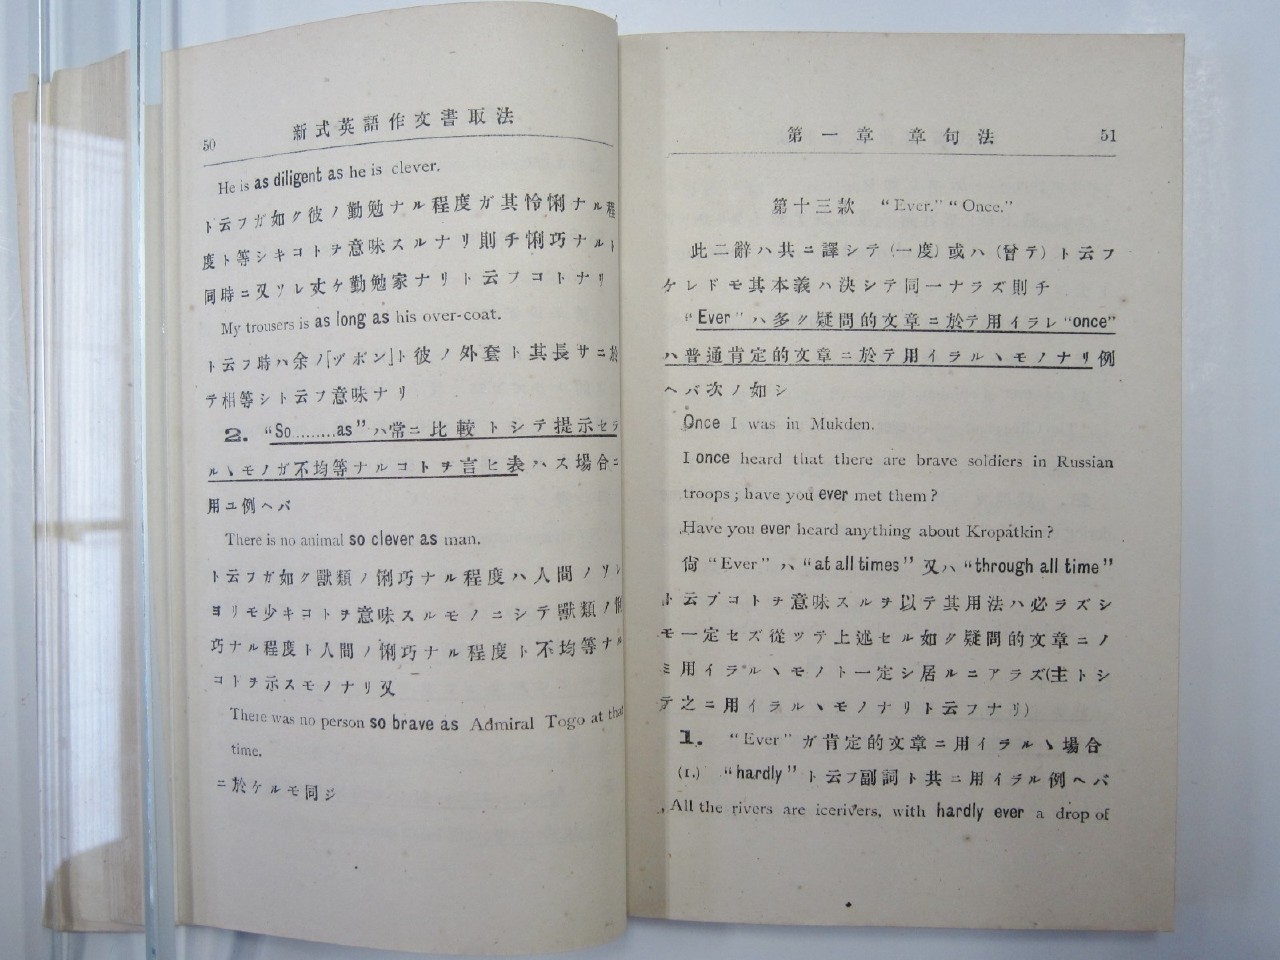 50 新式英語作文書取法
He is as diligent as he is clever.
ト云フガ如ク彼ノ勤勉ナル程度ガ其怜悧ナル程
度ト等シキコトヲ意味スルナリ則チ悧巧ナルト
同時ニ又ソレ丈ケ勤勉家ナリト云フコトナリ
My trousers is as long as his over-coat.
ト云フ時ハ余ノ「ヅボン」ト彼ノ外套ト其長サニ於
テ相等シト云フ意味ナリ
2. “So.........as” ハ常ニ比較トシテ提示セラ
ルヽモノガ不均等ナルコトヲ言ヒ表ハス場合ニ
用ユ例ヘバ
There is no animal so clever as man.
ト云フガ如ク獸類ノ悧巧ナル程度ハ人間ノソレ
ヨリモ少キコトヲ意味スルモノニシテ獸類ノ悧
巧ナル程度ト人間ノ悧巧ナル程度ト不均等ナル
コトヲ示スモノナリ又
There was no person so brave as Admiral Togo at that
time.
ニ於ケルモ同ジ
第一章 章句法 51
第十三款 “Ever.” “Once.”
此二辭ハ共ニ譯シテ（一度）或ハ（曾テ）ト云フ
ケレドモ其本義ハ決シテ同一ナラズ則チ
“Ever” ハ多ク疑問的文章ニ於テ用イラレ “once”
ハ普通肯定的文章ニ於テ用イラルヽモノナリ例
ヘバ次ノ如シ
Once I was in Mukden.
I once heard that there are brave soldiers in Russian
troops; have you ever met them?
Have you ever heard anything about Kropatkin?
尙 “Ever” ハ “at all times” 又ハ “through all time”
ト云フコトヲ意味スルヲ以テ其用法ハ必ラズシ
モ一定セズ從ッテ上述セル如ク疑問的文章ニノ
ミ用イラルヽモノト一定シ居ルニアラズ(主トシ
テ之ニ用イラルヽモノナリト云フナリ)
1. “Ever” ガ肯定的文章ニ用イラルヽ場合
(1.) “hardly” ト云フ副詞ト共ニ用イラル例ヘバ
All the rivers are icerivers, with hardly ever a drop of